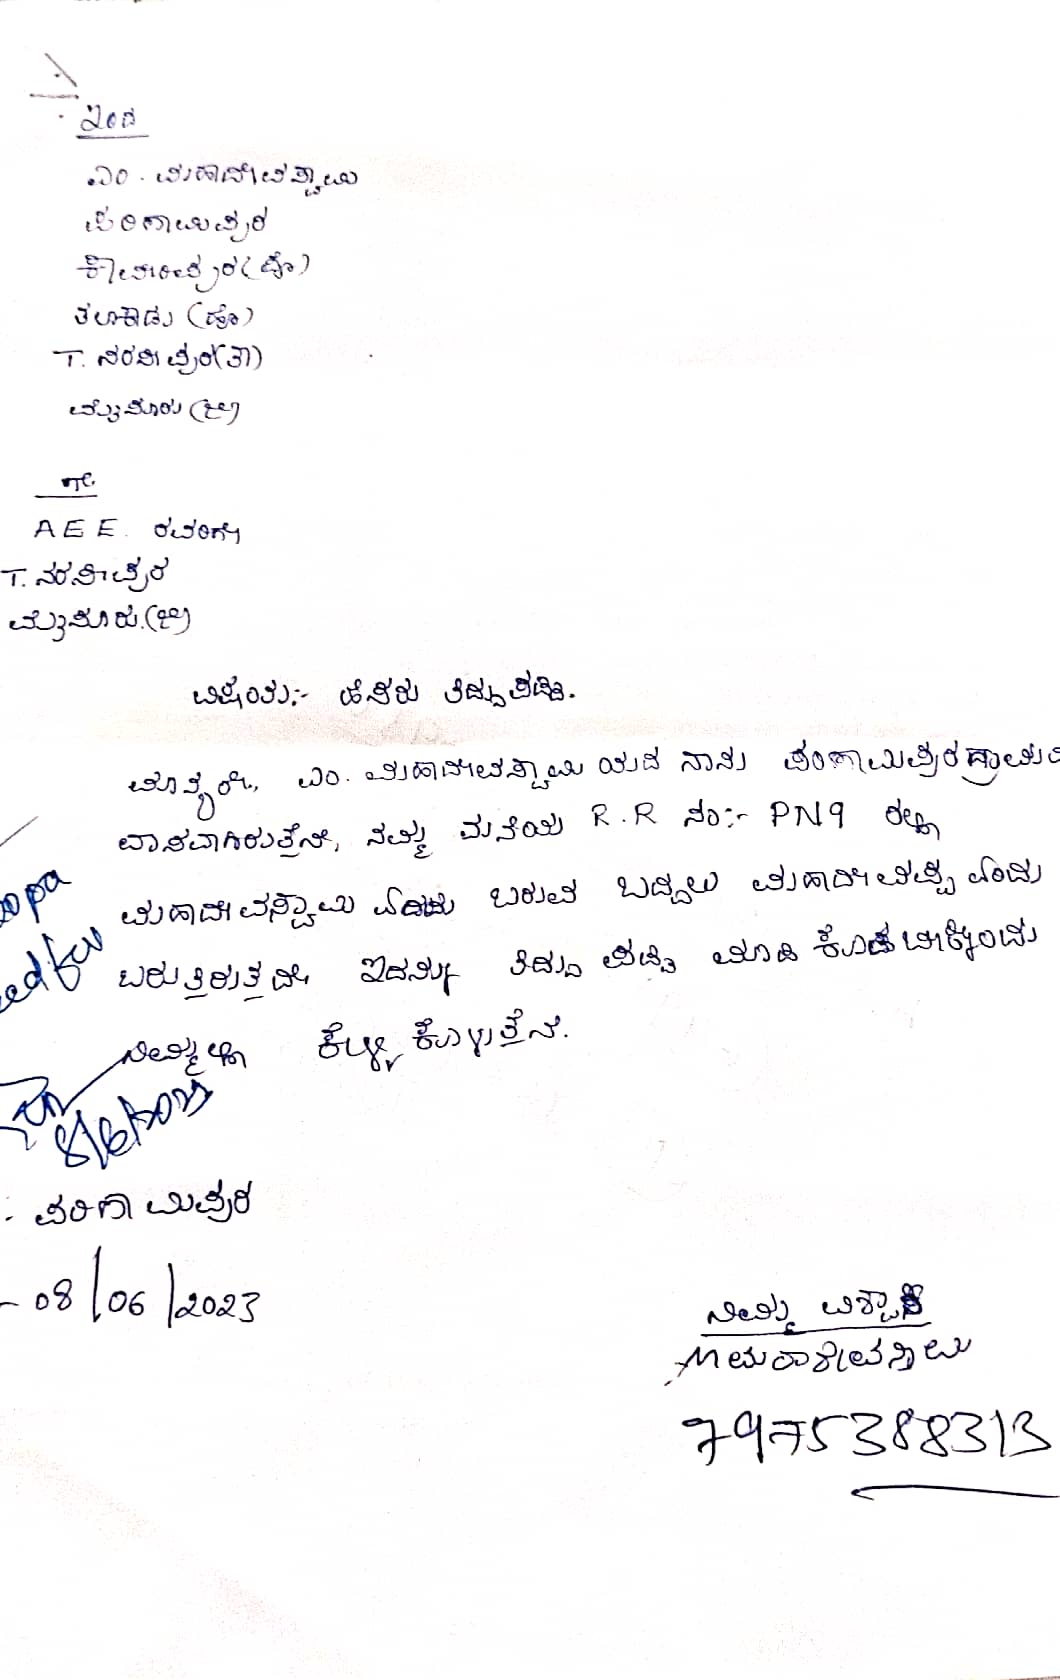 ಇಂದ
ಎಂ. ಮಹಾದೇವಸ್ವಾಮಿ
ಪರಿಣಾಮಿಪುರ
ಕಾವೇರಿಪುರ (ಪೊ)
ತಲಕಾಡು (ಹೋ)
T. ನರಸೀಪುರ (ತಾ)
ಮೈಸೂರು (ಜಿ)
ಗೆ.
AEE. ರವರಿಗೆ
T. ನರಸೀಪುರ
ಮೈಸೂರು. (ಜಿ)
ವಿಷಯ:- ಹೆಸರು ತಿದ್ದುಪಡಿ.
ಮಾನ್ಯರೇ, ಎಂ. ಮಹಾದೇವಸ್ವಾಮಿ ಯಾದ ನಾನು
ವಾಸವಾಗಿರುತ್ತೇನೆ, ನಮ್ಮ ಮನೆಯ R.R ನಂ:- PN9 ರಲ್ಲಿ
ಮಹಾದೇವಸ್ವಾಮಿ ಎಂದು ಬರುವ ಬದಲು ಮಹಾದೇವಪ್ಪ ಎಂದು
ಬರುತ್ತಿರುತ್ತದೆ ಇದನ್ನು ತಿದ್ದು ಪಡಿ ಮಾಡಿ ಕೊಡಬೇಕೆಂದು
ನಿಮ್ಮಲ್ಲಿ ಕೇಳಿ ಕೊಳ್ಳುತ್ತೇನೆ.
8/6/2023
:- ಪರಿಣಾಮಿಪುರ
- 08/06/2023
ನಿಮ್ಮ ವಿಶ್ವಾಸಿ
M ಮಹಾದೇವಸ್ವಾಮಿ
7975388313